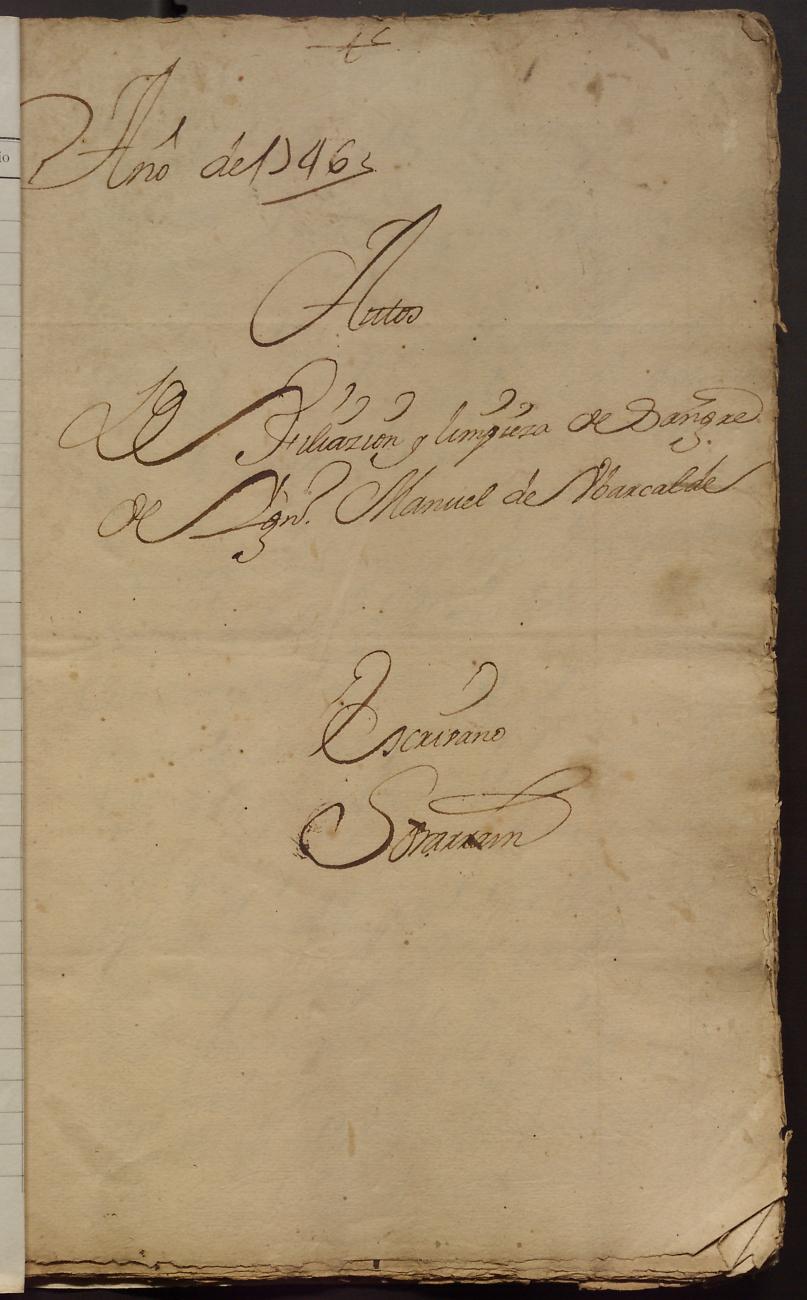 Año de 1746
Autos
De Filiazion y limpieza de Sangre
de Dn. Manuel de Abarcalde
Escrivano
io